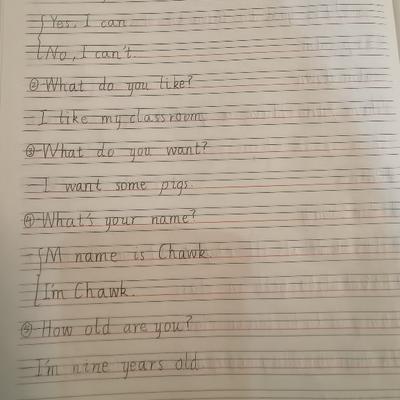 Yes, I can.
No, I can't.
②What do you like?
I like my classroom.
③What do you want?
I want some pigs.
④What's your name?
M name is Chawk.
I'm Chawk.
⑤How old are you?
I'm nine years old.